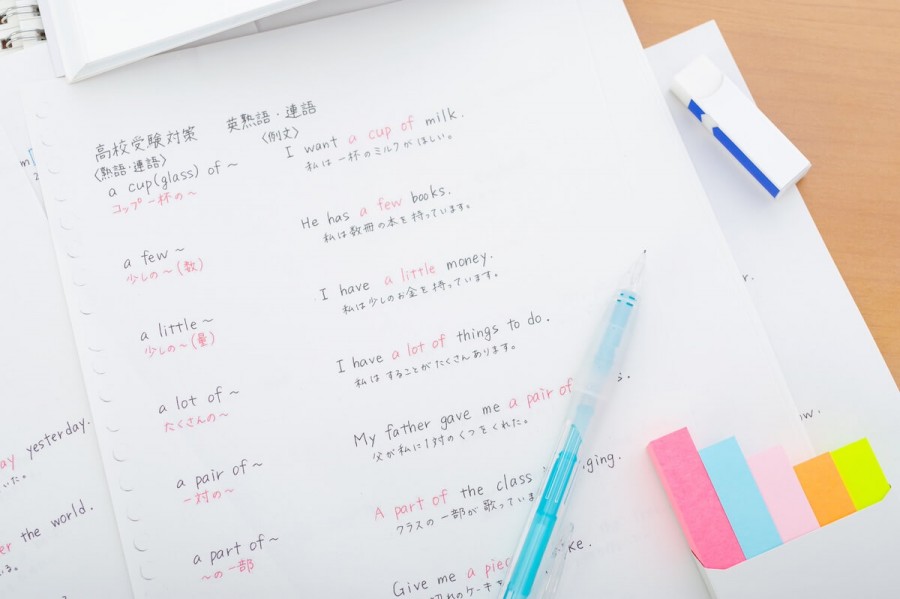 高校受験対策 英熟語・連語
〈熟語・連語〉 〈例文〉
a cup(glass) of ～ I want a cup of milk.
コップ一杯の～ 私は一杯のミルクがほしい。
a few ～ He has a few books.
少しの～(数) 私は数冊の本を持っています。
a little ～ I have a little money.
少しの～(量) 私は少しのお金を持っています。
a lot of ～ I have a lot of things to do.
たくさんの～ 私はすることがたくさんあります。
a pair of ～ My father gave me a pair of
一対の～ 父が私に1対のくつをくれた。
a part of ～ A part of the class
～の一部 クラスの一部が歌ってい
Give me a
yesterday.
the world.